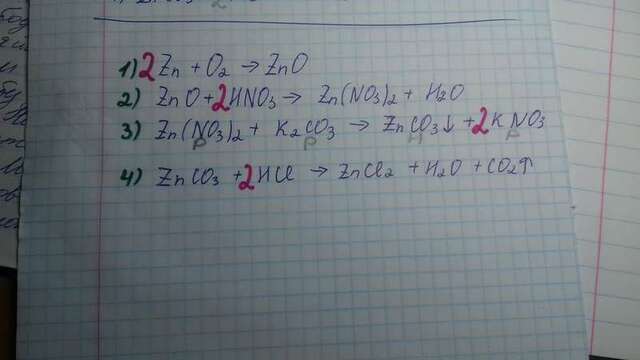 1) 2Zn + O2 → ZnO
2) ZnO + 2HNO3 → Zn(NO3)2 + H2O
3) Zn(NO3)2 + K2CO3 → ZnCO3↓ + 2KNO3
Р Р Н Р
4) ZnCO3 + 2HCl → ZnCl2 + H2O + CO2↑